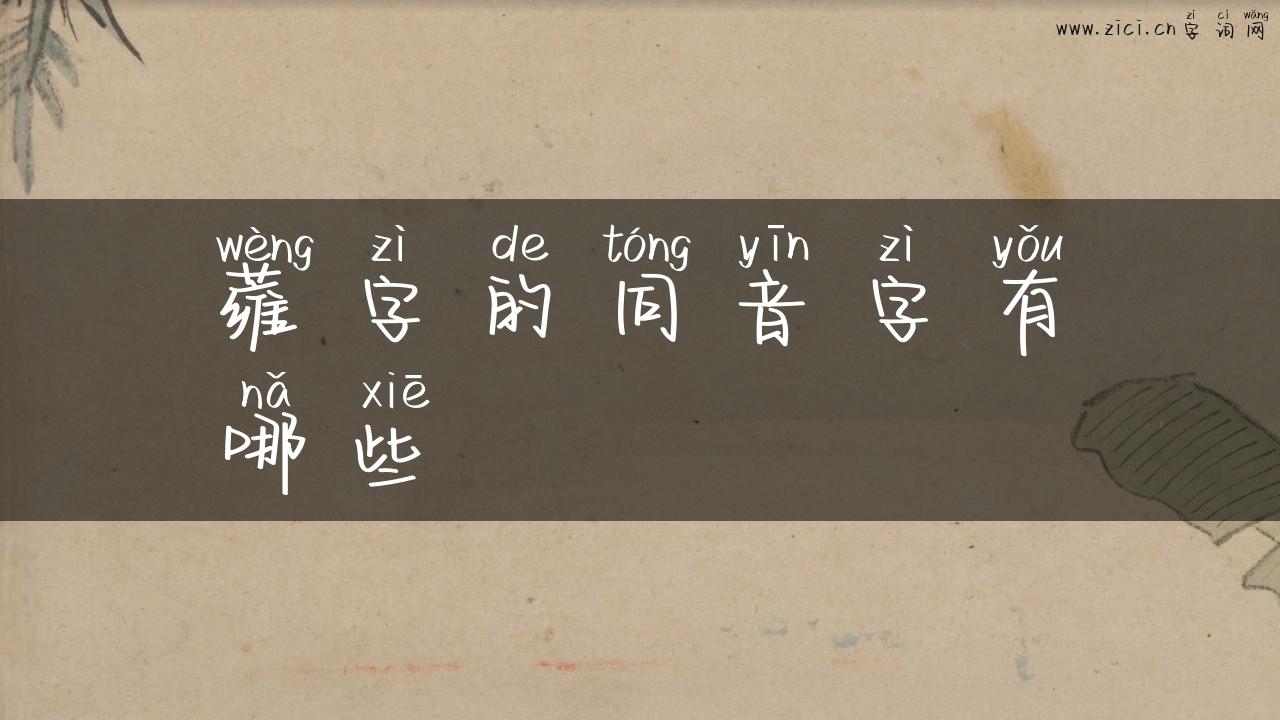 zì cí wǎng
www.zici.cn 字词网
wèng zì de tóng yīn zì yǒu
蕹字的同音字有
nǎ xiē
哪些